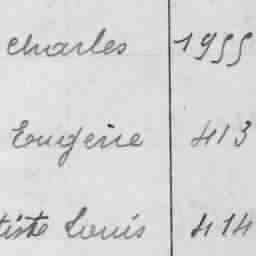 Charles 1955
Eugénie 413
tiste Louis 414